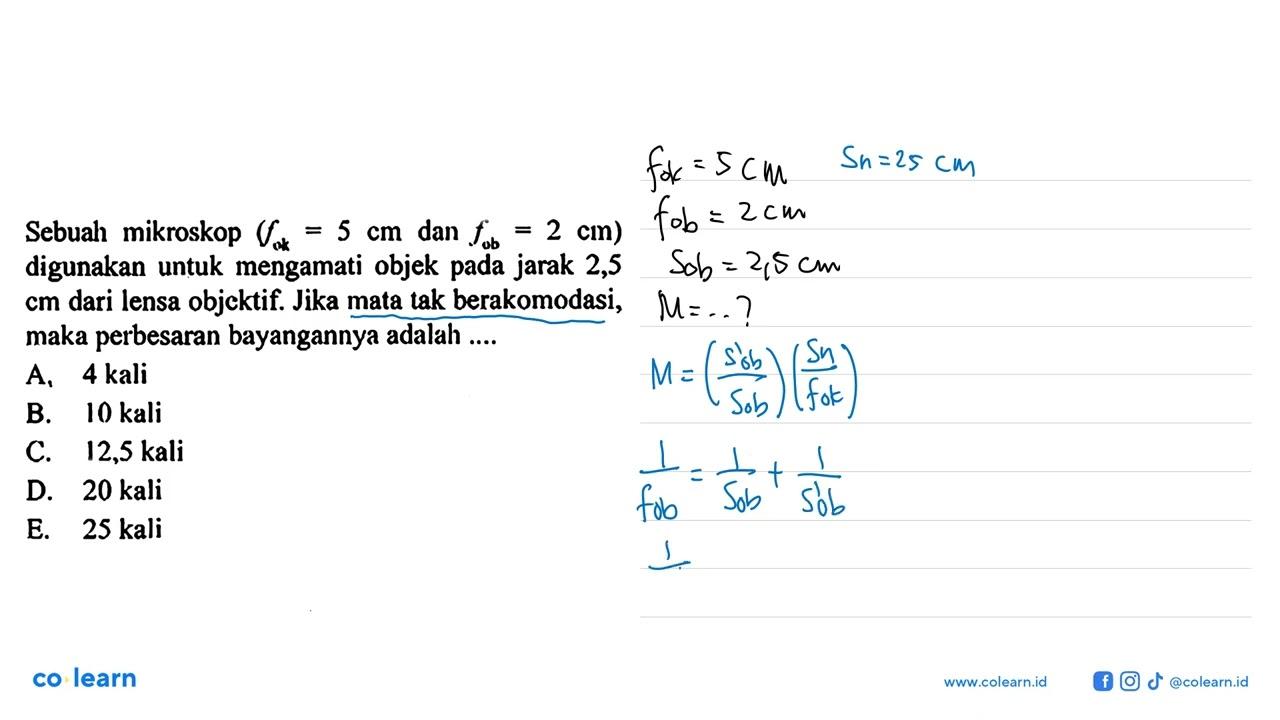 Sebuah mikroskop (f_ok = 5 cm dan f_ob = 2 cm)
digunakan untuk mengamati objek pada jarak 2,5
cm dari lensa objektif. Jika mata tak berakomodasi,
maka perbesaran bayangannya adalah ....
A. 4 kali
B. 10 kali
C. 12,5 kali
D. 20 kali
E. 25 kali
fok = 5 cm Sn = 25 cm
fob = 2 cm
Sob = 2,5 cm
M = ..?
M = (S'ob/Sob)(Sn/fok)
1/fob = 1/Sob + 1/S'ob
1
co·learn
www.colearn.id @colearn.id